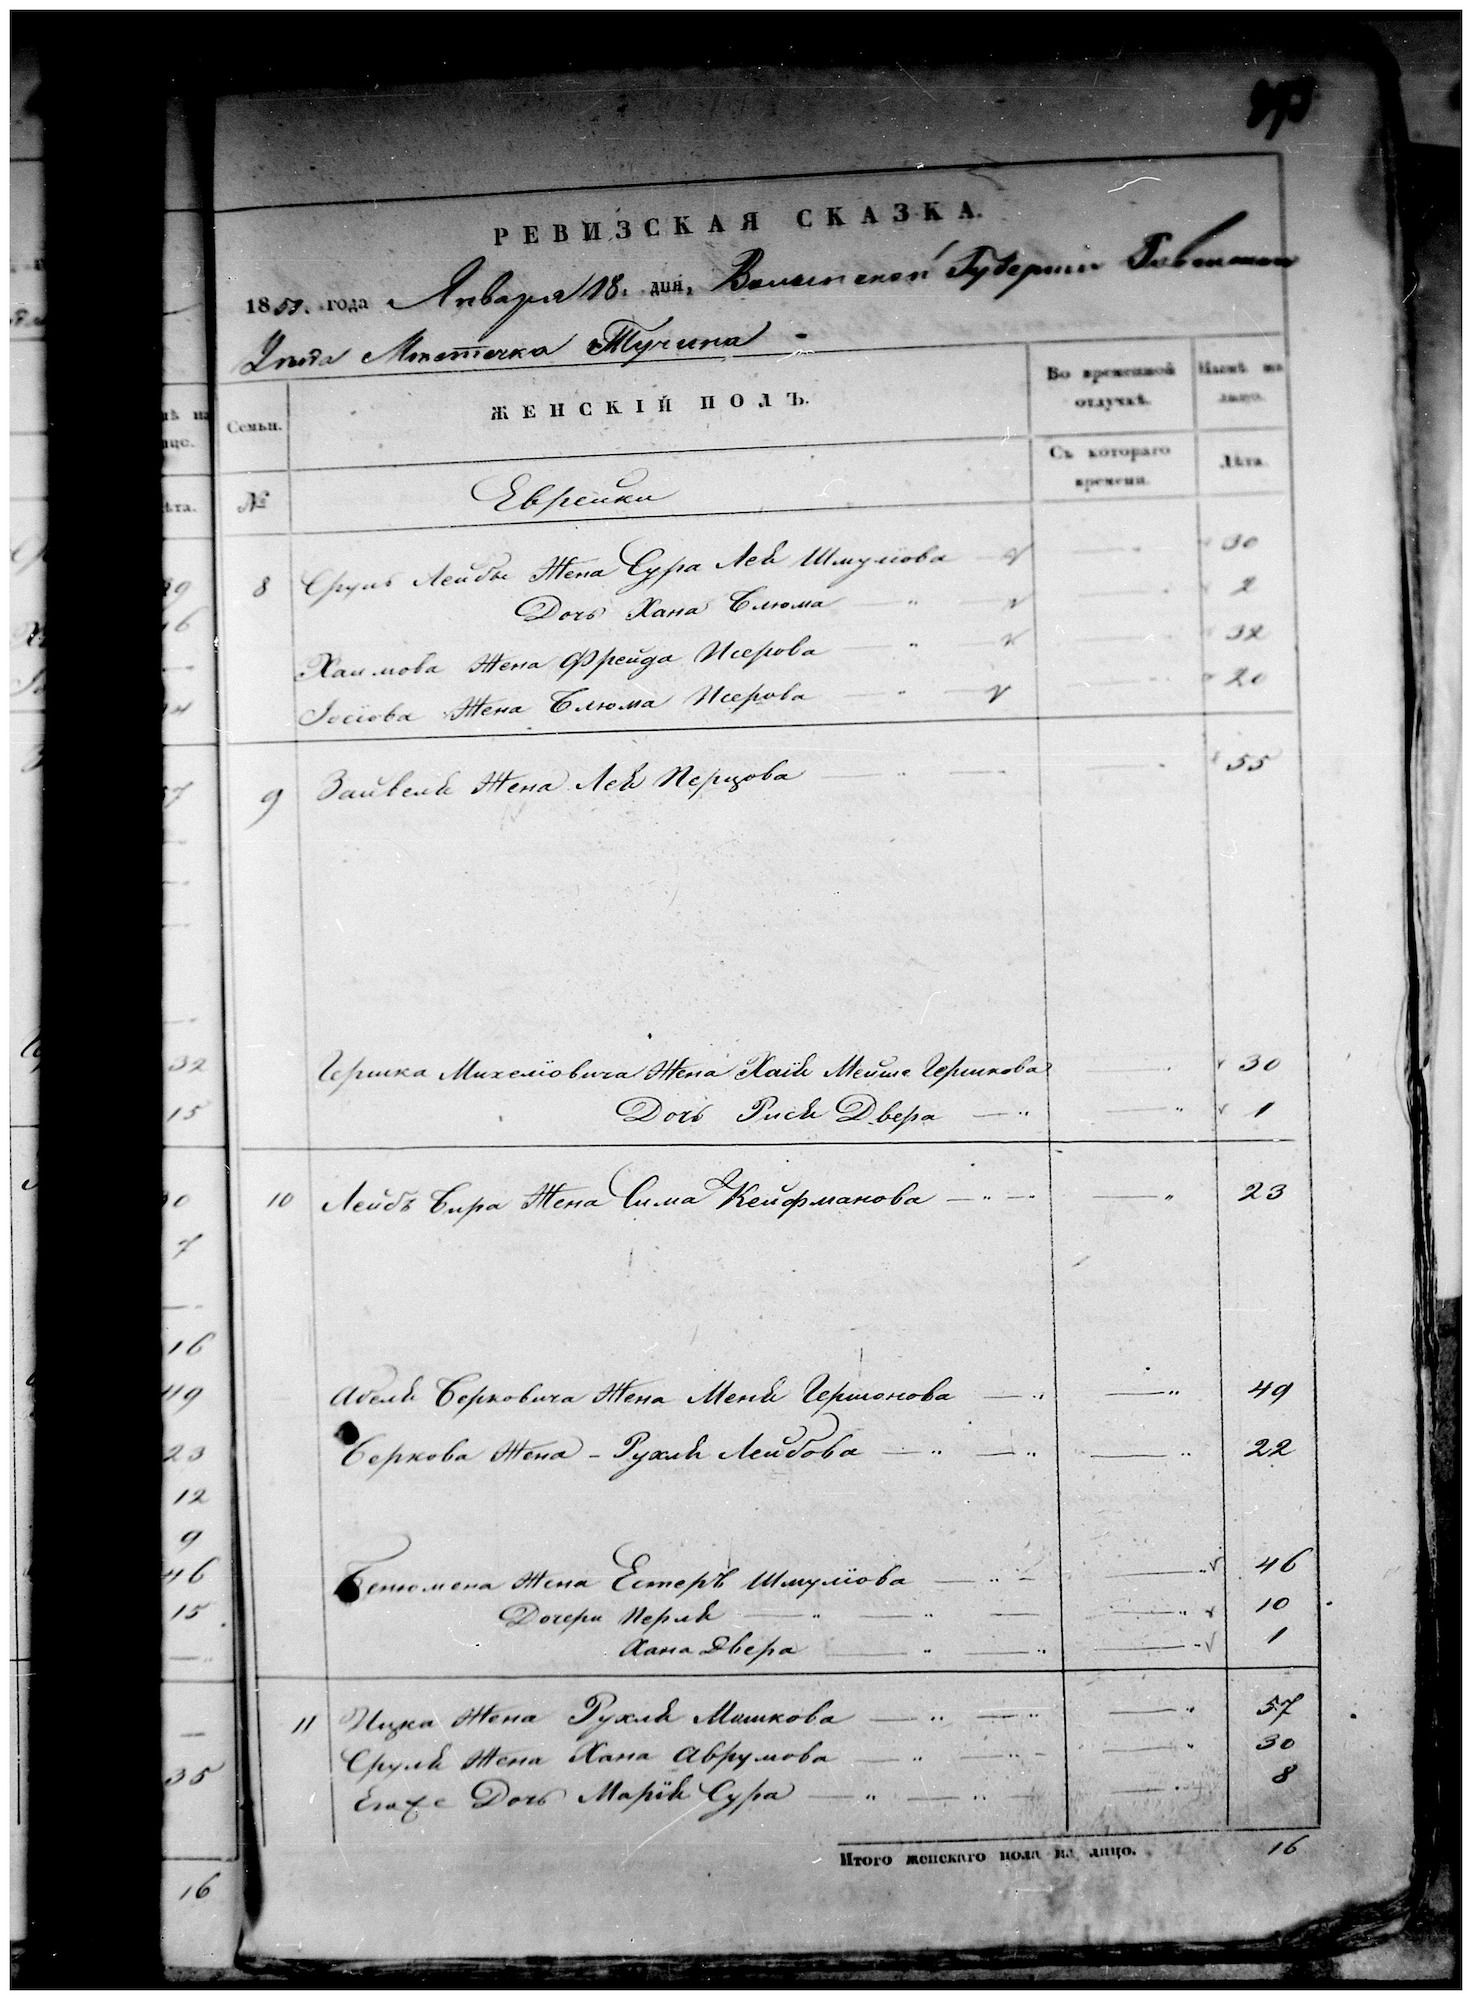 РЕВИЗСКАЯ СКАЗКА.
185 . года Января 18. дня, Волынской Губернии Ровенскаго
Уѣзда Мѣстечка Тучина
Семьи.
ЖЕНСКІЙ ПОЛЪ.
Во временной отлучкѣ.
Нынѣ на лицо.
№
Еврейки
Съ котораго времени.
Лѣта.
8 Сруль Лейбы Жена Сура Лея Шмулiова 30
Дочь Хана Блюма 2
Хаимова Жена Фрейда Исерова 32
Iосiова Жена Блюма Исерова 20
9 Зайвеля Жена Лея Перцова 55
Гершка Михелiовича Жена Хаiя Мейше Гершкова 30
Дочь Рися Двера 1
10 Лейбъ Бера Жена Сима Кейфманова 23
Абеля Берковича Жена Меня Гершонова 49
Беркова Жена - Рухля Лейбова 22
Бенюмена Жена Естеръ Шмулiова 46
Дочери Перля 10
Хана Двера 1
11 Ицка Жена Рухля Мошкова 57
Сруля Жена Хана Аврумова 30
Егоже Дочь Марiя Сура 8
Итого женскаго пола на лицо. 16
нѣ на
лице.
ѣта.
32
15
7
16
49
23
12
9
46
15
35
16